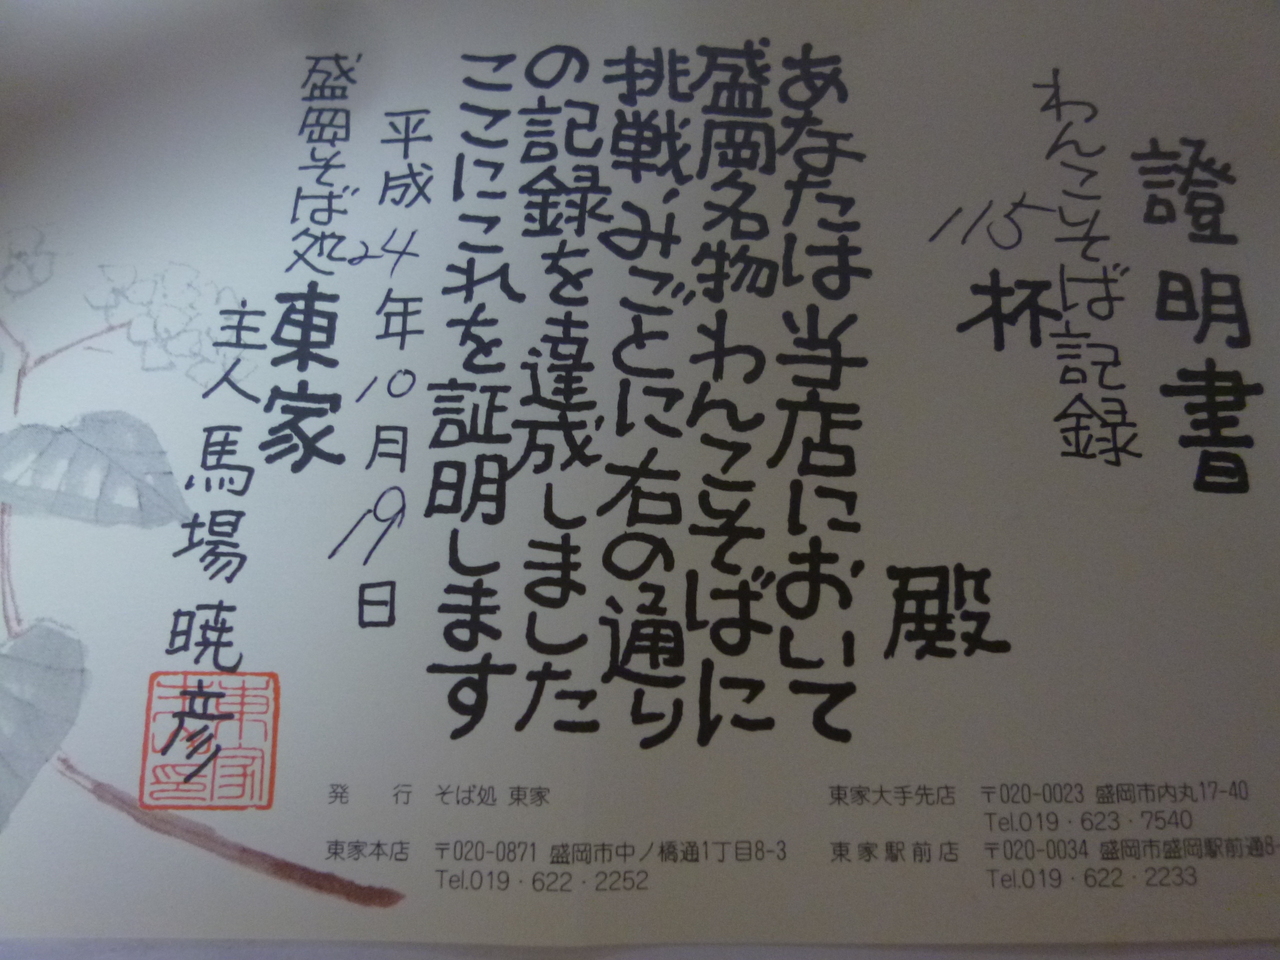 證明書
わんこそば記録
115杯
殿
あなたは当店において
盛岡名物わんこそばに
挑戦、みごとに右の通り
の記録を達成しました
ここにこれを証明します
平成24年10月19日
盛岡そば処 東家
主人 馬場暁彦
発行 そば処 東家
東家本店 〒020-0871 盛岡市中ノ橋通1丁目8-3
Tel.019・622・2252
東家大手先店 〒020-0023 盛岡市内丸17-40
Tel.019・623・7540
東家駅前店 〒020-0034 盛岡市盛岡駅前通8-
Tel.019・622・2233